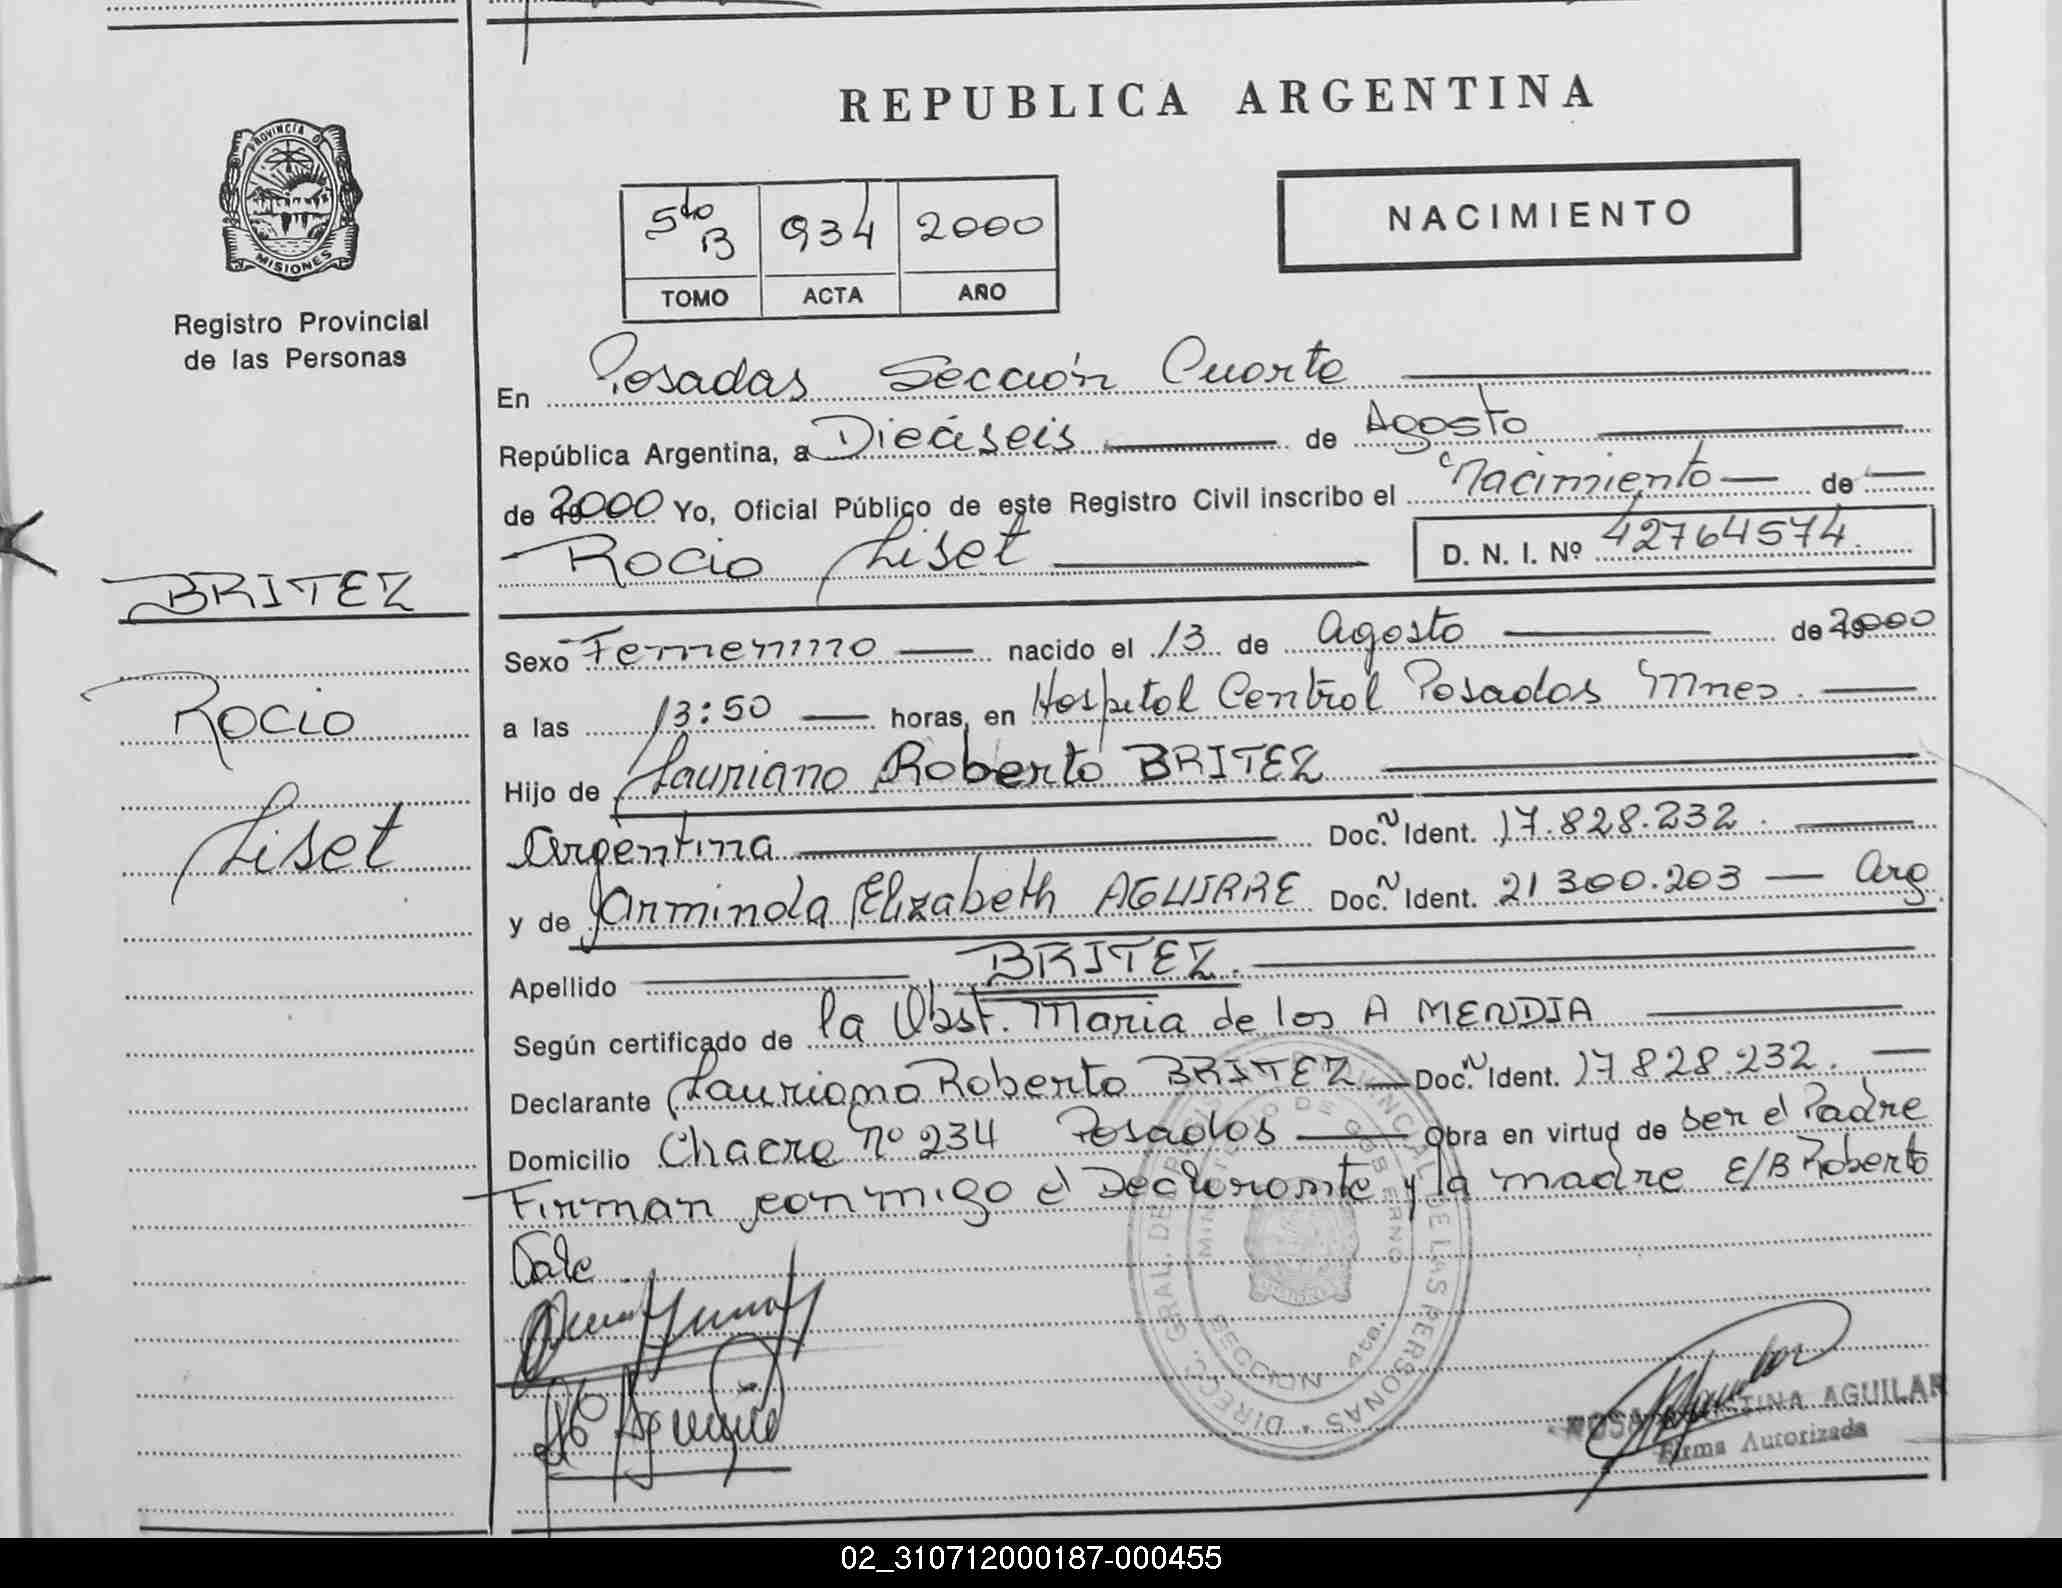 REPUBLICA ARGENTINA
PROVINCIA DE
MISIONES
Registro Provincial
de las Personas
5to B 934 2000
TOMO ACTA AÑO
NACIMIENTO
En Posadas Sección Cuarta
República Argentina, a Dieciseis de Agosto
de 2000 Yo, Oficial Público de este Registro Civil inscribo el Nacimiento de
Rocio Liset D. N. I. Nº 42764574
BRITEZ
Rocio
Liset
Sexo Femenino nacido el 13 de Agosto de 2000
a las 13:50 horas, en Hospital Central Posadas Mnes.
Hijo de Lauriano Roberto BRITEZ
Argentina Doc. N Ident. 17.828.232
y de Jarminda Elizabeth AGUIRRE Doc. N Ident. 21 300.203 Arg
Apellido BRITEZ.
Según certificado de la Obst. Maria de los A MENDIA
Declarante Lauriano Roberto BRITEZ Doc. N Ident. 17828.232.
Domicilio Chacra nº 234 Posadas Obra en virtud de ser el Padre
Firman conmigo el Declarante y la madre E/B Roberto
Vale
DIREC. GRAL. DEL REG. PROVINCIAL DE LAS PERSONAS
MINISTERIO DE GOBIERNO
SECCION 4ta.
ROSA AGUILAR
Firma Autorizada
02_310712000187-000455